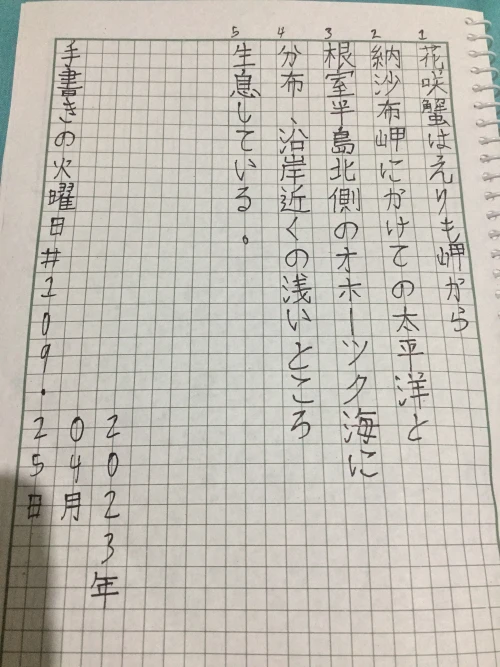 1 花咲蟹はえりも岬から
2 納沙布岬にかけての太平洋と
3 根室半島北側のオホーツク海に
4 分布、沿岸近くの浅いところ
5 生息している。
手書きの火曜日#109.
2023年
04月
25日